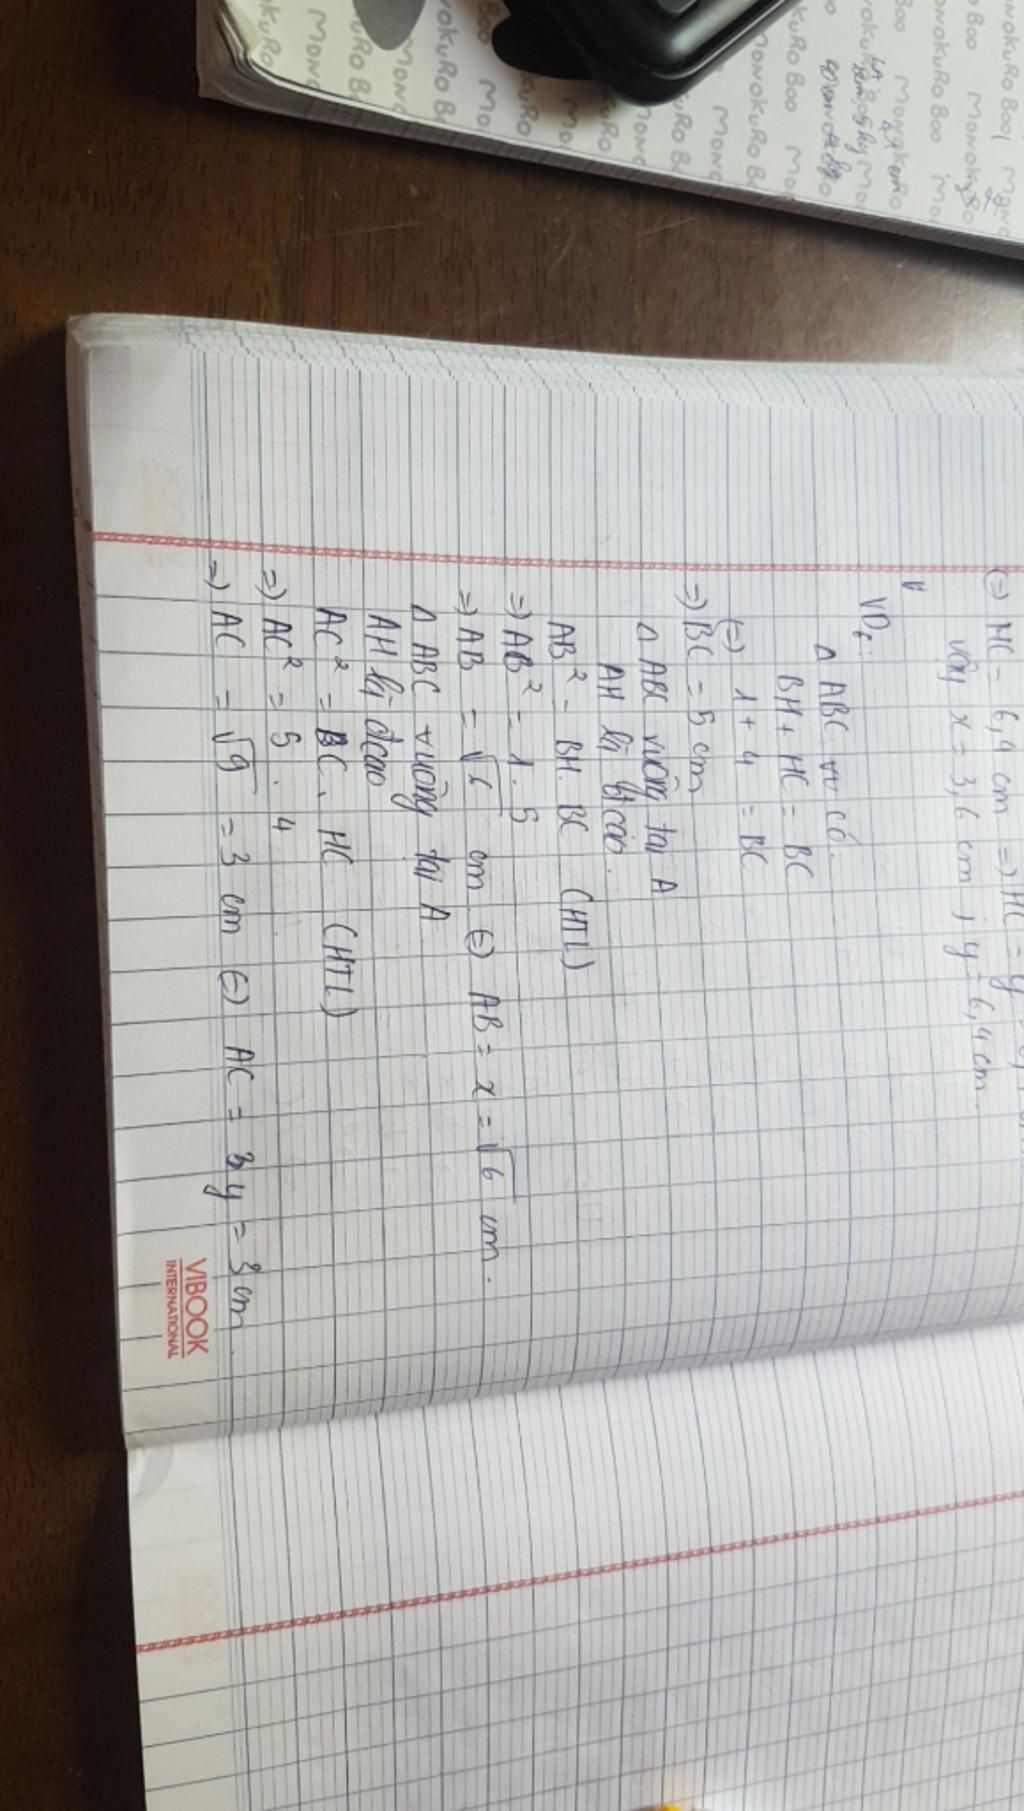 (=) HC = 6,4 cm => HC = y
Vậy x = 3,6 cm ; y = 6,4 cm.
VD
Δ ABC vv có.
BH + HC = BC
(=) 1 + 4 = BC
=> BC = 5 cm
Δ ABC vuông tại A
AH là đcao.
AB² = BH. BC (HTL)
=> AB² = 1. 5
=> AB = √6 cm (=) AB = x = √6 cm.
Δ ABC vuông tại A
AH là đcao
AC² = BC. HC (HTL)
=> AC² = 5 . 4
=> AC = √9 = 3 cm (=) AC = y = 3 cm
VIBOOK
INTERNATIONAL
MONOKURO BOO